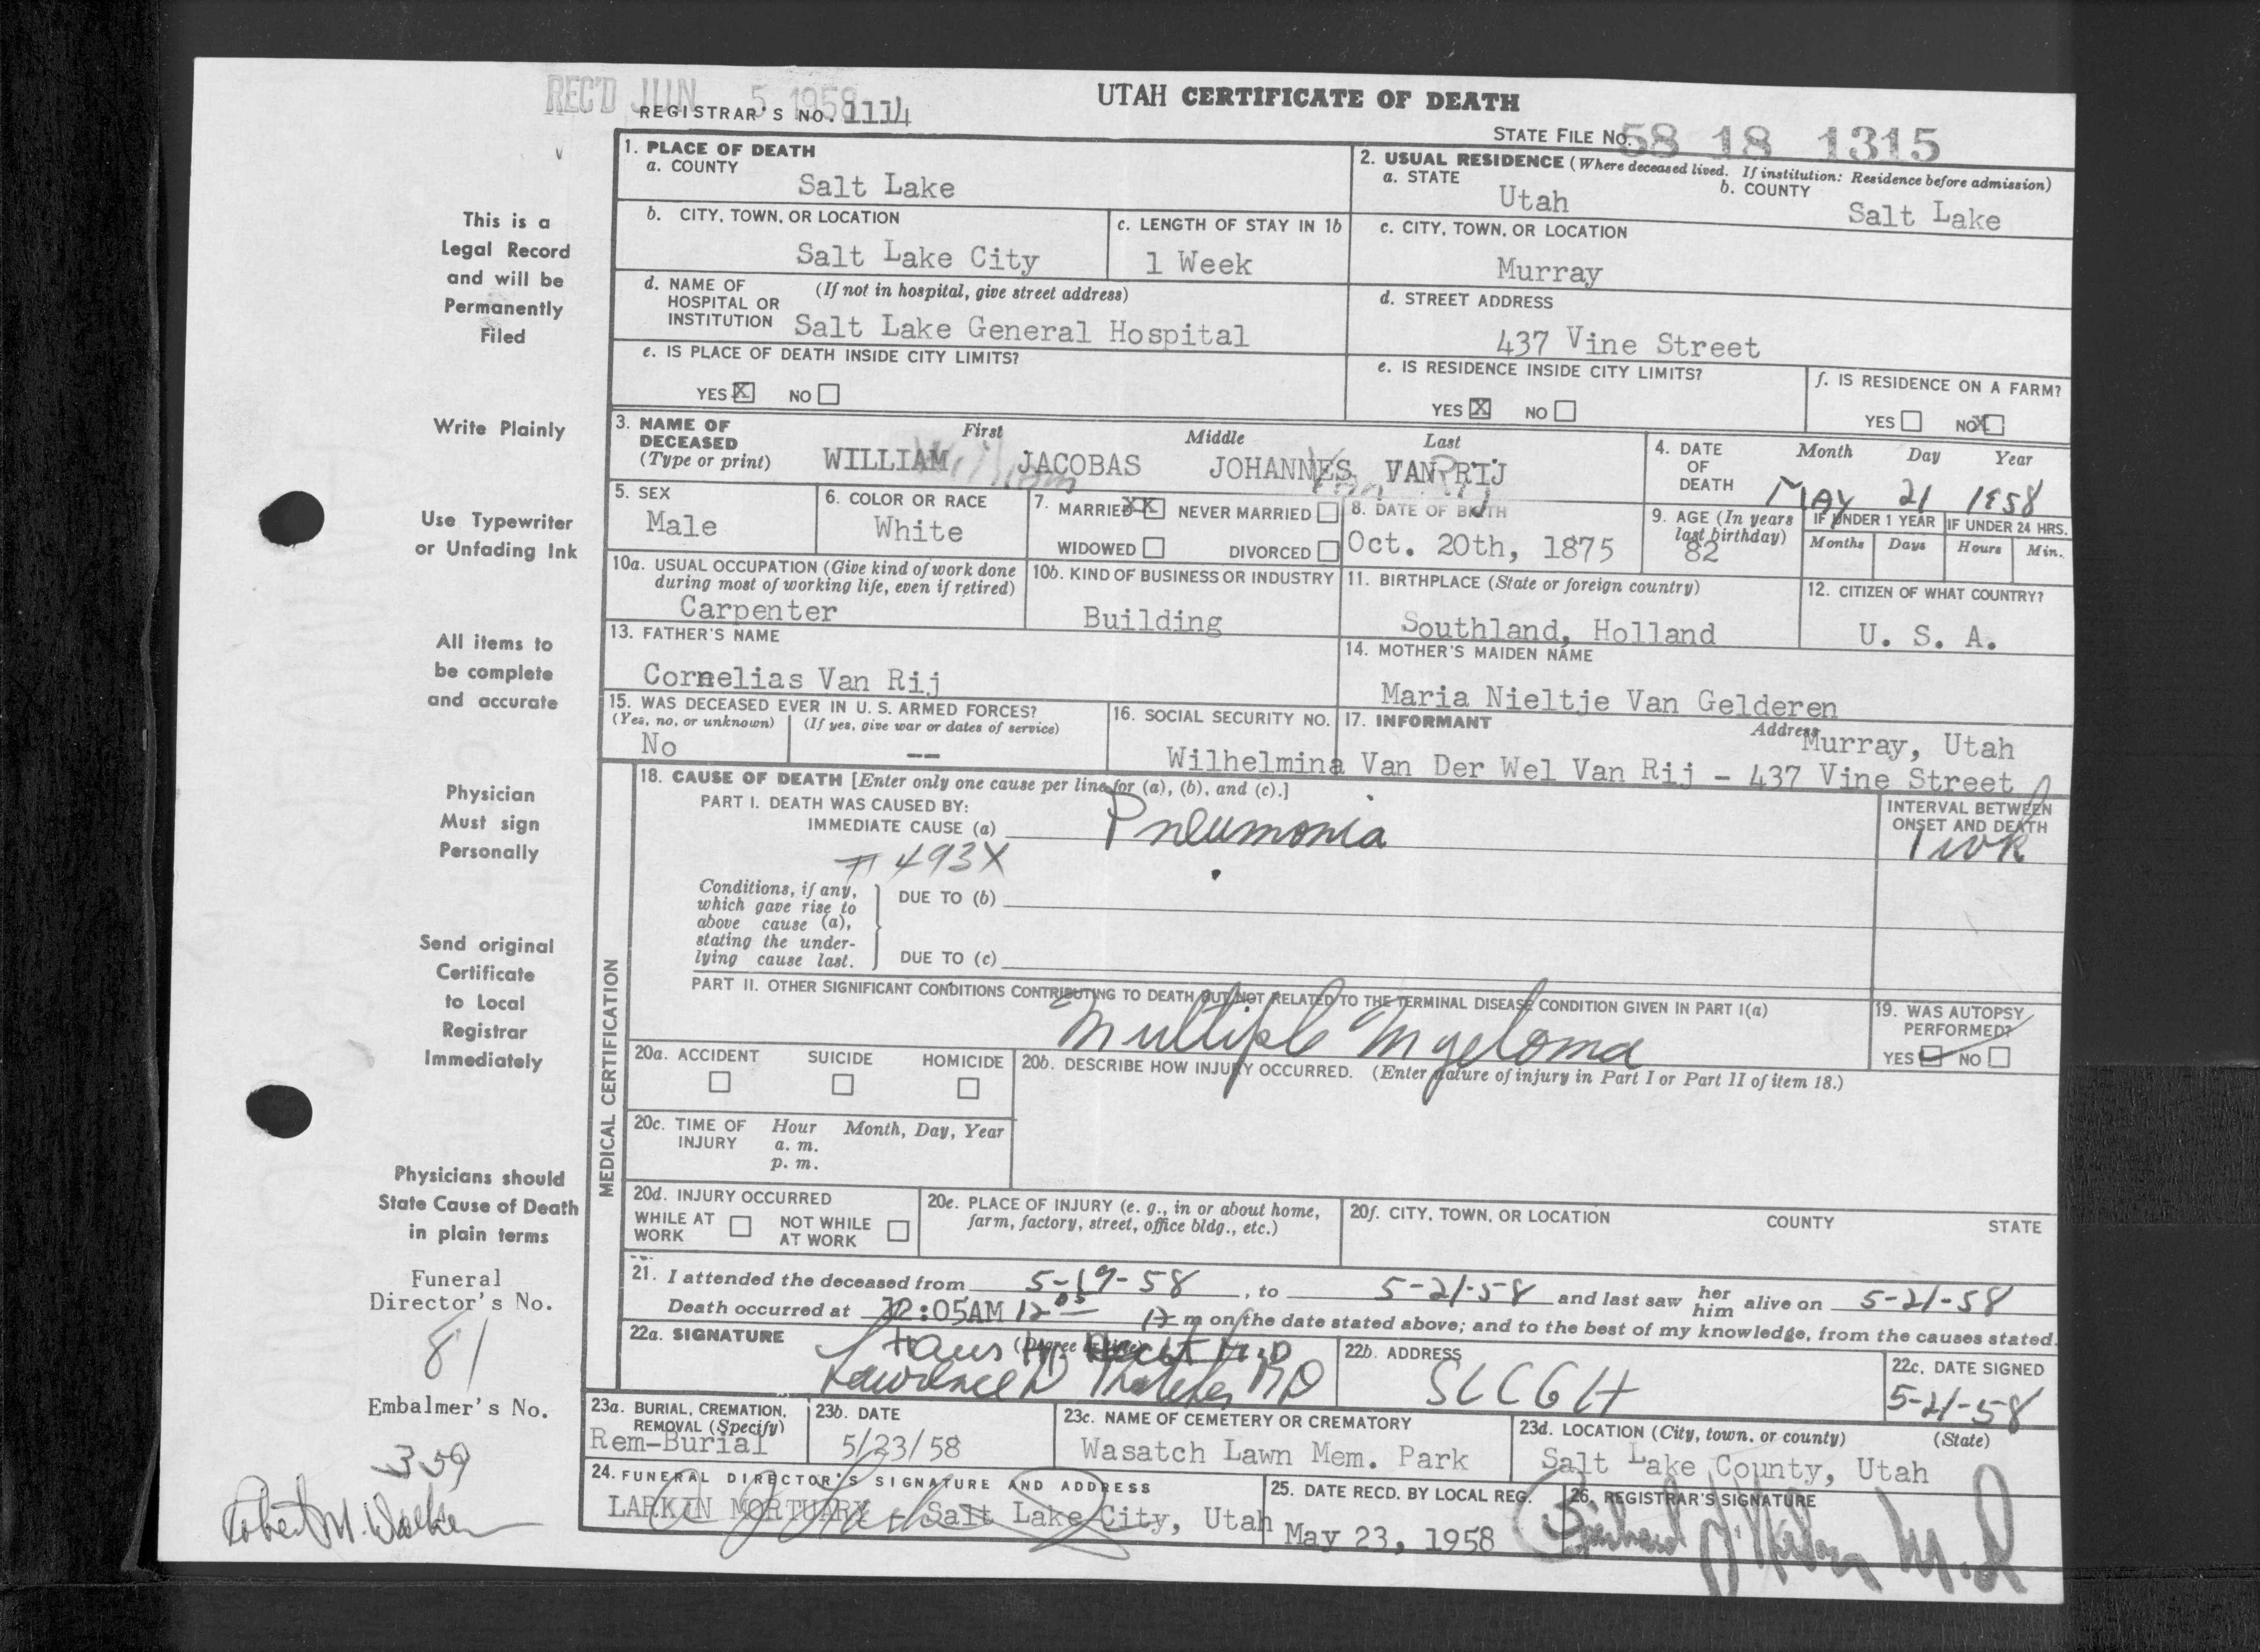 REC'D JUN 5 1958
UTAH CERTIFICATE OF DEATH
REGISTRAR'S NO. 1114
STATE FILE NO. 58 18 1315
This is a
Legal Record
and will be
Permanently
Filed
Write Plainly
Use Typewriter
or Unfading Ink
All items to
be complete
and accurate
Physician
Must sign
Personally
Send original
Certificate
to Local
Registrar
Immediately
Physicians should
State Cause of Death
in plain terms
Funeral
Director's No.
81
Embalmer's No.
359
Robert M. Walker
1. PLACE OF DEATH
a. COUNTY
Salt Lake
2. USUAL RESIDENCE (Where deceased lived. If institution: Residence before admission)
a. STATE
Utah
b. COUNTY
Salt Lake
b. CITY, TOWN, OR LOCATION
Salt Lake City
c. LENGTH OF STAY IN 1b
1 Week
c. CITY, TOWN, OR LOCATION
Murray
d. NAME OF HOSPITAL OR INSTITUTION
(If not in hospital, give street address)
Salt Lake General Hospital
d. STREET ADDRESS
437 Vine Street
e. IS PLACE OF DEATH INSIDE CITY LIMITS?
YES X NO
e. IS RESIDENCE INSIDE CITY LIMITS?
YES X NO
f. IS RESIDENCE ON A FARM?
YES NO X
3. NAME OF DECEASED (Type or print)
First Middle Last
WILLIAM JACOBAS JOHANNES VAN RIJ
William Van Rij
4. DATE OF DEATH
Month Day Year
MAY 21 1958
5. SEX
Male
6. COLOR OR RACE
White
7. MARRIED XX NEVER MARRIED
WIDOWED DIVORCED
8. DATE OF BIRTH
Oct. 20th, 1875
9. AGE (In years last birthday)
82
IF UNDER 1 YEAR
Months Days
IF UNDER 24 HRS.
Hours Min.
10a. USUAL OCCUPATION (Give kind of work done
during most of working life, even if retired)
Carpenter
10b. KIND OF BUSINESS OR INDUSTRY
Building
11. BIRTHPLACE (State or foreign country)
Southland, Holland
12. CITIZEN OF WHAT COUNTRY?
U. S. A.
13. FATHER'S NAME
Cornelias Van Rij
14. MOTHER'S MAIDEN NAME
Maria Nieltje Van Gelderen
15. WAS DECEASED EVER IN U. S. ARMED FORCES?
(Yes, no, or unknown) (If yes, give war or dates of service)
No --
16. SOCIAL SECURITY NO.
17. INFORMANT
Address
Murray, Utah
Wilhelmina Van Der Wel Van Rij - 437 Vine Street
MEDICAL CERTIFICATION
18. CAUSE OF DEATH [Enter only one cause per line for (a), (b), and (c).]
PART I. DEATH WAS CAUSED BY:
IMMEDIATE CAUSE (a) Pneumonia
493X
INTERVAL BETWEEN
ONSET AND DEATH
1 wk
Conditions, if any,
which gave rise to
above cause (a),
stating the under-
lying cause last.
DUE TO (b)
DUE TO (c)
PART II. OTHER SIGNIFICANT CONDITIONS CONTRIBUTING TO DEATH BUT NOT RELATED TO THE TERMINAL DISEASE CONDITION GIVEN IN PART I(a)
Multiple Myeloma
19. WAS AUTOPSY
PERFORMED?
YES NO
20a. ACCIDENT SUICIDE HOMICIDE
20b. DESCRIBE HOW INJURY OCCURRED. (Enter nature of injury in Part I or Part II of item 18.)
20c. TIME OF INJURY
Hour Month, Day, Year
a. m.
p. m.
20d. INJURY OCCURRED
WHILE AT WORK NOT WHILE AT WORK
20e. PLACE OF INJURY (e. g., in or about home,
farm, factory, street, office bldg., etc.)
20f. CITY, TOWN, OR LOCATION COUNTY STATE
21. I attended the deceased from 5-19-58, to 5-21-58 and last saw her him alive on 5-21-58
Death occurred at 12:05AM 12 05 m on the date stated above; and to the best of my knowledge, from the causes stated.
22a. SIGNATURE
(Degree or title)
Hans Hecht M.D
Lawrence D Thatcher MD
22b. ADDRESS
SLCGH
22c. DATE SIGNED
5-21-58
23a. BURIAL, CREMATION,
REMOVAL (Specify)
Rem-Burial
23b. DATE
5/23/58
23c. NAME OF CEMETERY OR CREMATORY
Wasatch Lawn Mem. Park
23d. LOCATION (City, town, or county) (State)
Salt Lake County, Utah
24. FUNERAL DIRECTOR'S SIGNATURE AND ADDRESS
LARKIN MORTUARY - Salt Lake City, Utah
25. DATE RECD. BY LOCAL REG.
May 23, 1958
26. REGISTRAR'S SIGNATURE
M.D